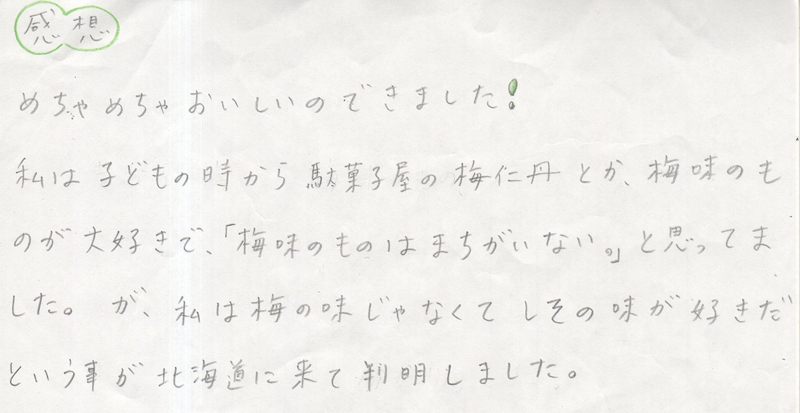 感想
めちゃめちゃおいしいのできました!
私は子どもの時から駄菓子屋の梅仁丹とか、梅味のも
のが大好きで、「梅味のものはまちがいない。」と思ってま
した。が、私は梅の味じゃなくてしその味が好きだ
という事が北海道に来て判明しました。